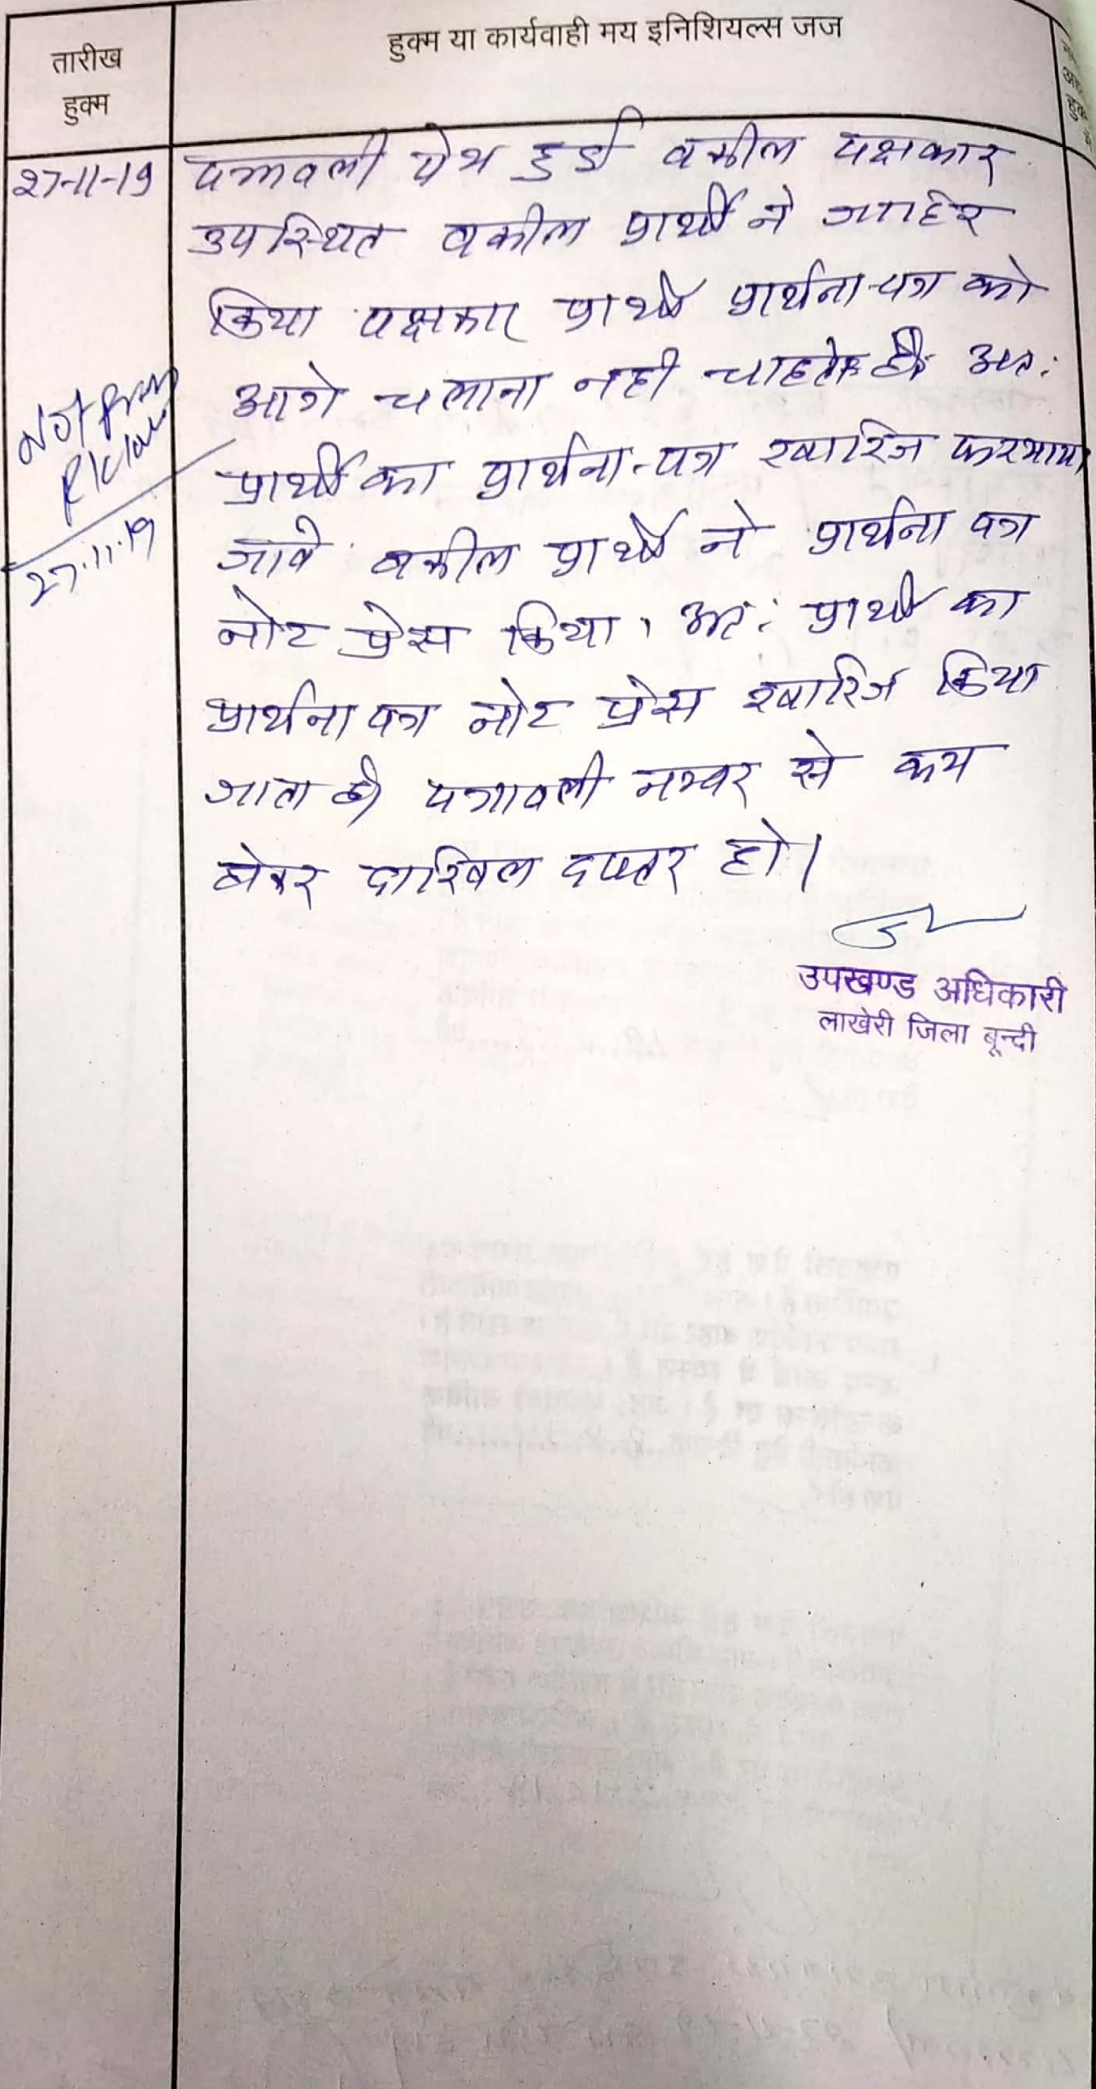 तारीख
हुक्म
हुक्म या कार्यवाही मय इनिशियल्स जज
27-11-19
पत्रावली पेश हुई वकील पक्षकार
उपस्थित वकील प्रार्थी ने जाहिर
किया पक्षकार प्रार्थी प्रार्थना-पत्र को
आगे चलाना नही चाहते है अतः
प्रार्थी का प्रार्थना-पत्र खारिज फरमाया
जावे वकील प्रार्थी ने प्रार्थना पत्र
नोट प्रेस किया। अतः प्रार्थी का
प्रार्थना पत्र नोट प्रेस खारिज किया
जाता है पत्रावली नम्बर से कम
होकर दाखिल दफ्तर हो।
Not
27.11.19
उपखण्ड अधिकारी
लाखेरी जिला बून्दी